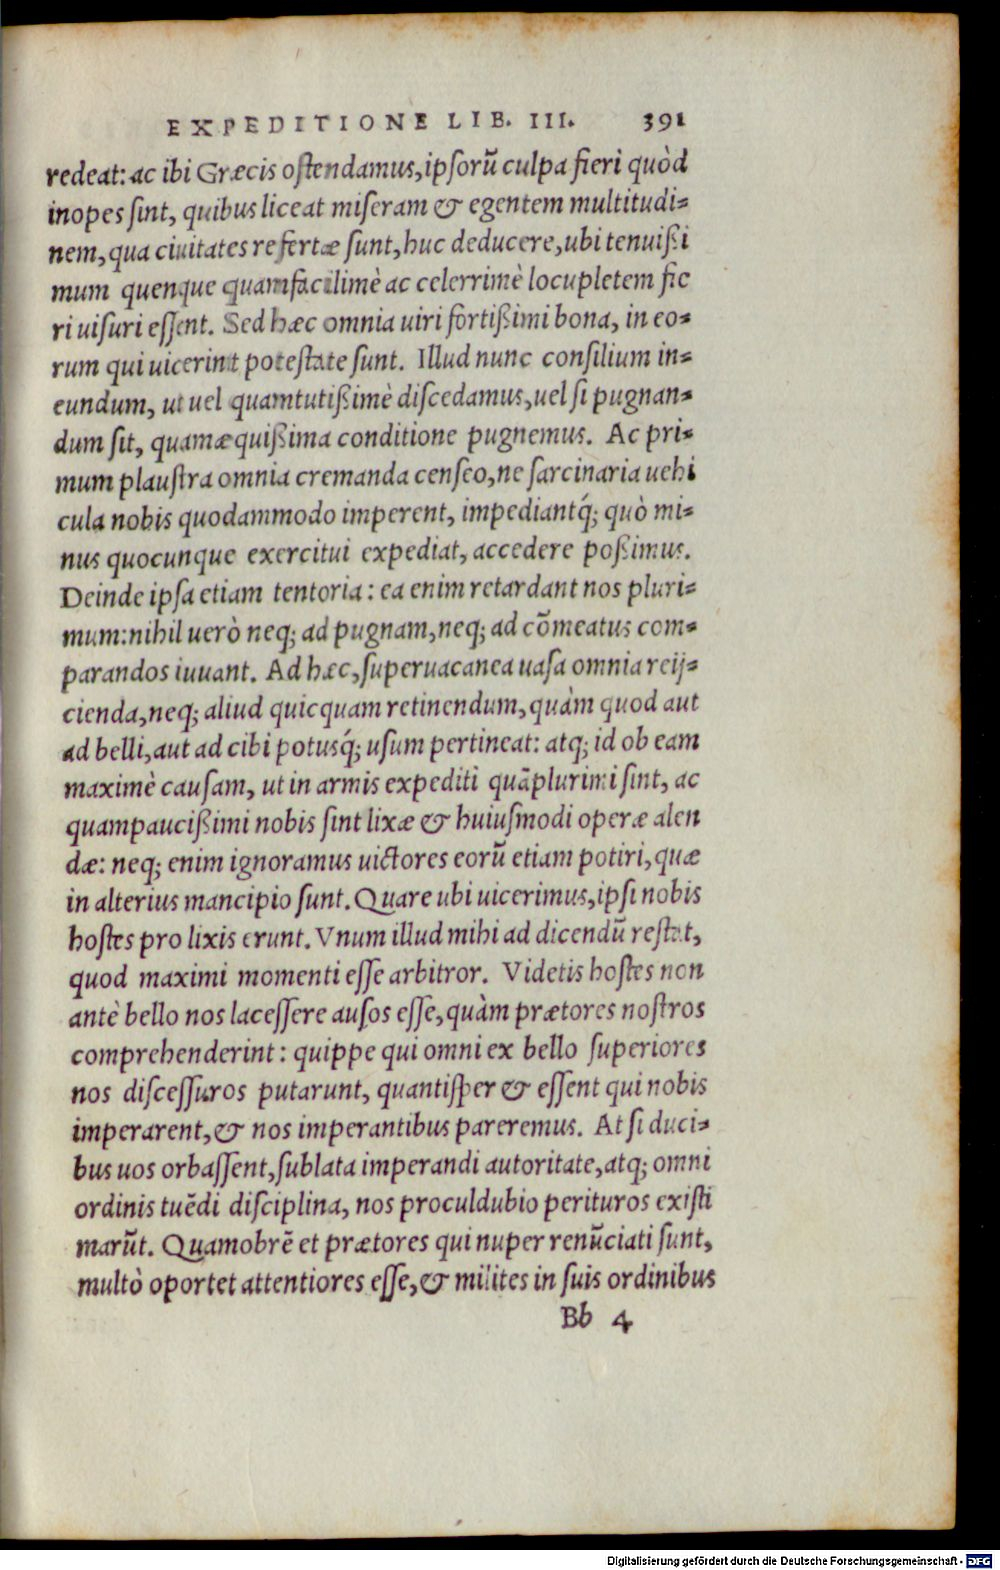 EXPEDITIONE LIB. III. 391
redeat: ac ibi Græcis ostendamus, ipsorũ culpa fieri quòd
inopes sint, quibus liceat miseram & egentem multitudi-
nem, qua ciuitates refertæ sunt, huc deducere, ubi tenuißi
mum quenque quamfacilimè ac celerrimè locupletem fie
ri uisuri essent. Sed hæc omnia uiri fortißimi bona, in eo-
rum qui uicerint potestate sunt. Illud nunc consilium in-
eundum, ut uel quamtutißimè discedamus, uel si pugnan-
dum sit, quamæquißima conditione pugnemus. Ac pri-
mum plaustra omnia cremanda censeo, ne sarcinaria uehi
cula nobis quodammodo imperent, impediantq́; quò mi-
nus quocunque exercitui expediat, accedere poßimus.
Deinde ipsa etiam tentoria: ea enim retardant nos pluri-
mum: nihil uerò neq; ad pugnam, neq; ad cõmeatus com-
parandos iuuant. Ad hæc, superuacanea uasa omnia reij-
cienda, neq; aliud quicquam retinendum, quàm quod aut
ad belli, aut ad cibi potusq́; usum pertineat: atq; id ob eam
maximè causam, ut in armis expediti quãplurimi sint, ac
quampaucißimi nobis sint lixæ & huiusmodi operæ alen
dæ: neq; enim ignoramus uictores eorũ etiam potiri, quæ
in alterius mancipio sunt. Quare ubi uicerimus, ipsi nobis
hostes pro lixis erunt. Vnum illud mihi ad dicendũ restat,
quod maximi momenti esse arbitror. Videtis hostes non
antè bello nos lacessere ausos esse, quàm prætores nostros
comprehenderint: quippe qui omni ex bello superiores
nos discessuros putarunt, quantisper & essent qui nobis
imperarent, & nos imperantibus pareremus. At si duci-
bus uos orbassent, sublata imperandi autoritate, atq; omni
ordinis tuẽdi disciplina, nos proculdubio perituros existi
marũt. Quamobrẽ et prætores qui nuper renũciati sunt,
multò oportet attentiores esse, & milites in suis ordinibus
Bb 4
Digitalisierung gefördert durch die Deutsche Forschungsgemeinschaft - DFG